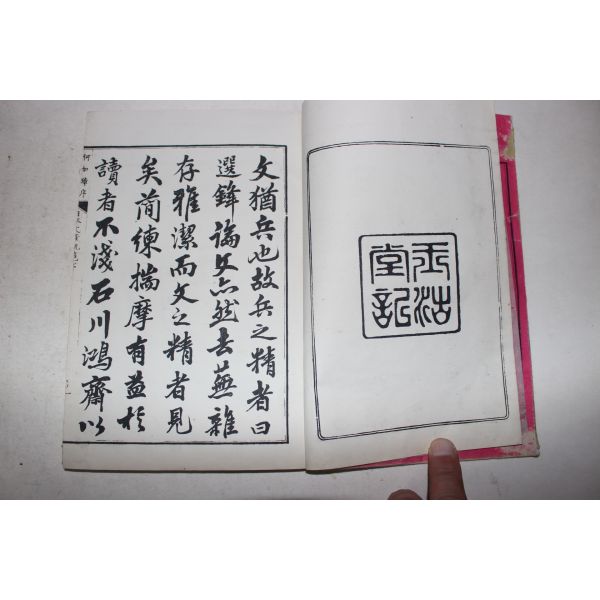 玉沽
堂記
文猶兵也故兵之精者曰
選鋒論文亦然去蕪雜
存雅潔而文之精者見
矣簡練揣摩有益於
讀者不淺石川鴻齋以
何如璋序